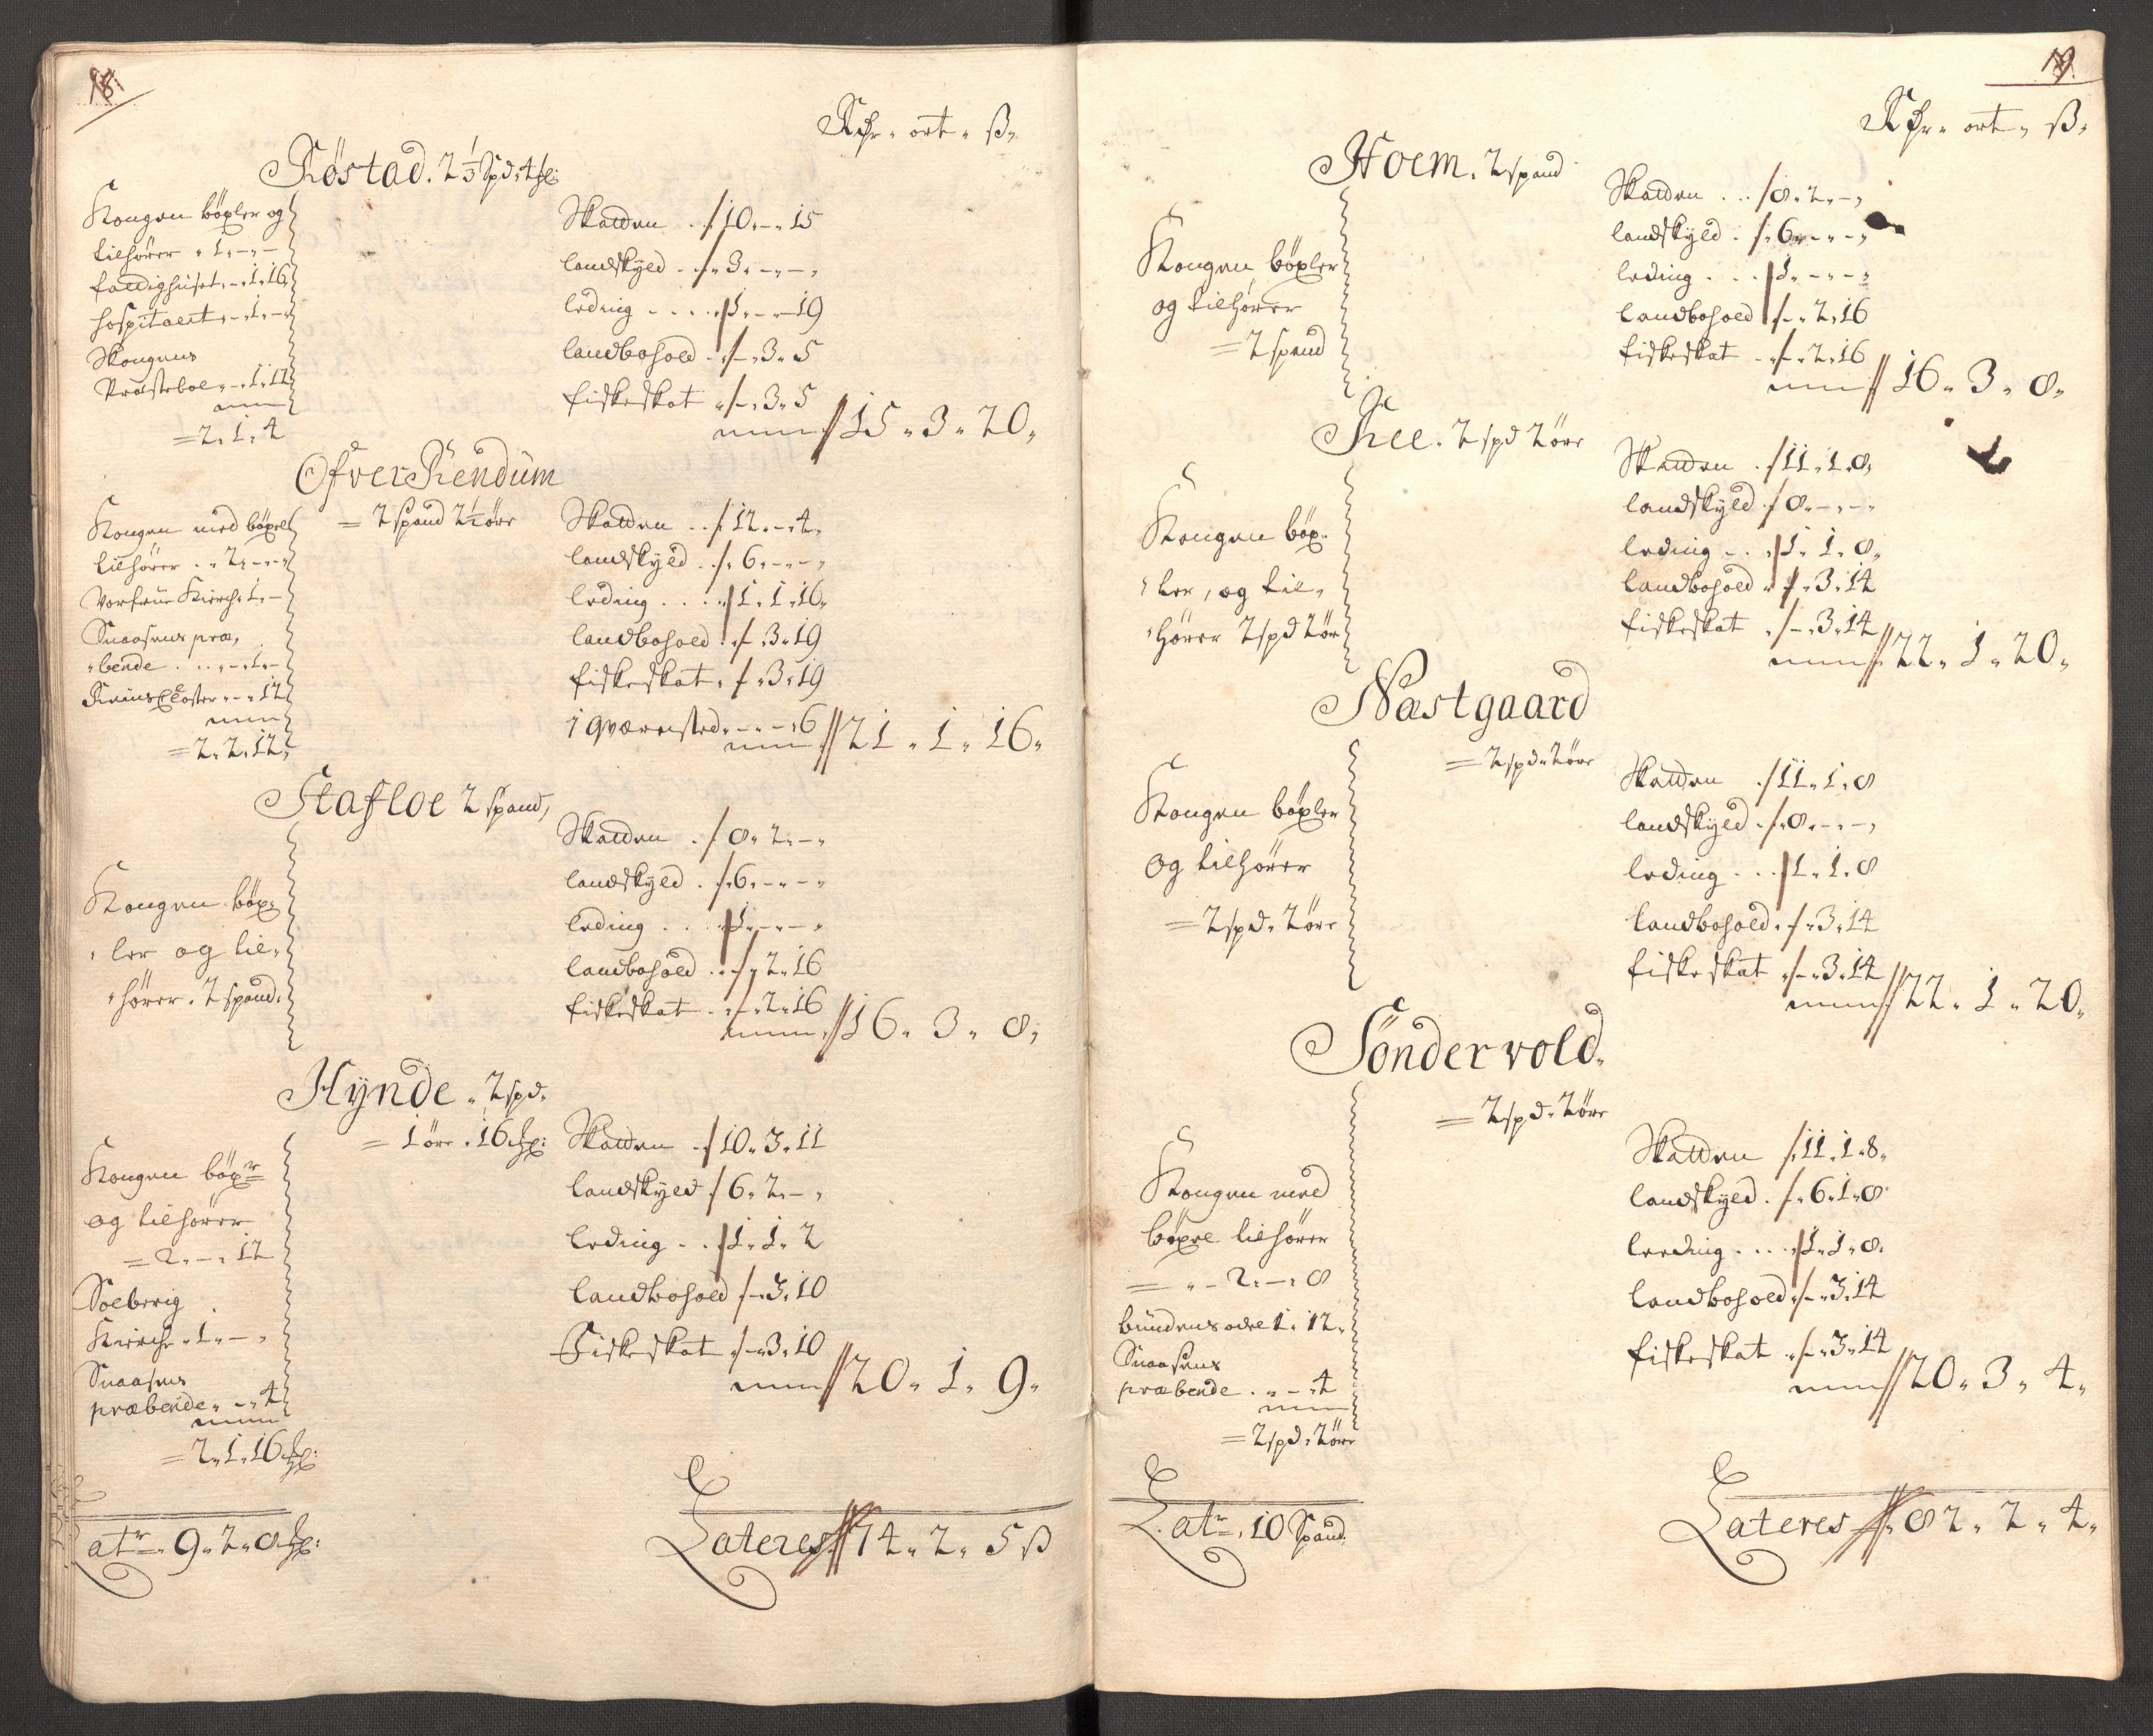 18.
Rdr. ort. ß.
Röstad. 2 1/3 Spd. 4 sl:
Kongen böxler og
tilhörer . 1. – . –
fattighuset . – . 1. 16.
hospitalet . – . 1. –
Skougens
Præstebol . – . 1. 12
= 2. 1. 4
Skatten . . 10. – . 15
landskyld . . 3. – . – .
leding . . . . 1. – . 19
landbohold . – . 3. 5
fiskeskat . – . 3. 5
15. 3. 20.
Ofver Rendum
= 2 Spand 2 1/2 öre
Kongen med böxel
tilhörer . . 2. – . –
Vorfrue Kirche 1. –
Snaasens præ,
bende . . . – . 1. –
Closter . – . 12
= 2. 2. 12.
Skatten . . 12. – . 4.
landskyld . . 6. – . – .
leding . . . 1. 1. 16.
landbohold . – . 3. 19
fiskeskat . – . 3. 19
1 qværnsted . – . – . 6
21. 1. 16.
Stafloe 2 spand,
Kongen böx.
ler og til.
hörer . 2 spand.
Skatten . 8. 2. – .
landskyld . . 6. – . – .
leding . . . 1. – . – .
landbohold . . – . 2. 16
fiskeskat . . – . 2. 16
16. 3. 8.
Hÿnde . 2 spd.
= 1 öre . 16 sl:
Kongen böxr
og tilhörer
= 2. – . 12
Solberig
Kirche . 1. – .
Snaasens
præbende . – . 4
= 2. 1. 16 sl:
Skatten . 10. 3. 11
landskyld . 6. 2. – .
leding . . 1. 1. 2
landbohold – . 3. 10
Fiskeskat . – . 3. 10
20. 1. 9.
Latr. 9. 2. 8 sl:
Lateres 74. 2. 5 ß
19.
Rdr. ort. ß.
Hoem. 2 spand
Kongen böxler
og tilhører
= 2 spand
Skatten . . 8. 2. – .
landskyld . . 6. – . – .
leding . . . 1. – . –
landbohold – . 2. 16
fiskeskat . – . 2. 16
16. 3. 8.
Ree. 2 spd 2 öre
Kongen böx.
ler, og til,
hörer 2 spd 2 ör
Skatten . 11. 1. 8.
landskyld . 8. – . – .
leding . . . 1. 1. 8.
landbohold . – . 3. 14
fiskeskat . – . 3. 14
22. 1. 20.
Næstgaard
= 2 spd. 2 öre
Kongen böxler
og tilhörer
= 2 spd. 2 öre
Skatten . 11. 1. 8
landskyld . . 8. – . – .
leding . . . 1. 1. 8
landbohold . – . 3. 14
fiskeskat . – . 3. 14
22. 1. 20.
Sönder vold.
= 2 spd. 2 öre
Kongen med
böxel tilhörer
= . – 2. – . 8
bundens odel 1. 12.
Snaasens
præbende . . – . 4
= 2 spd. 2 öre
Skatten . 11. 1. 8.
landskyld . . 6. 1. 8
leeding . . . 1. 1. 8.
landbohold . – . 3. 14
fiskeskat . – . 3. 14
20. 3. 4.
Latr. 10 Spand.
Lateres 82. 2. 4.